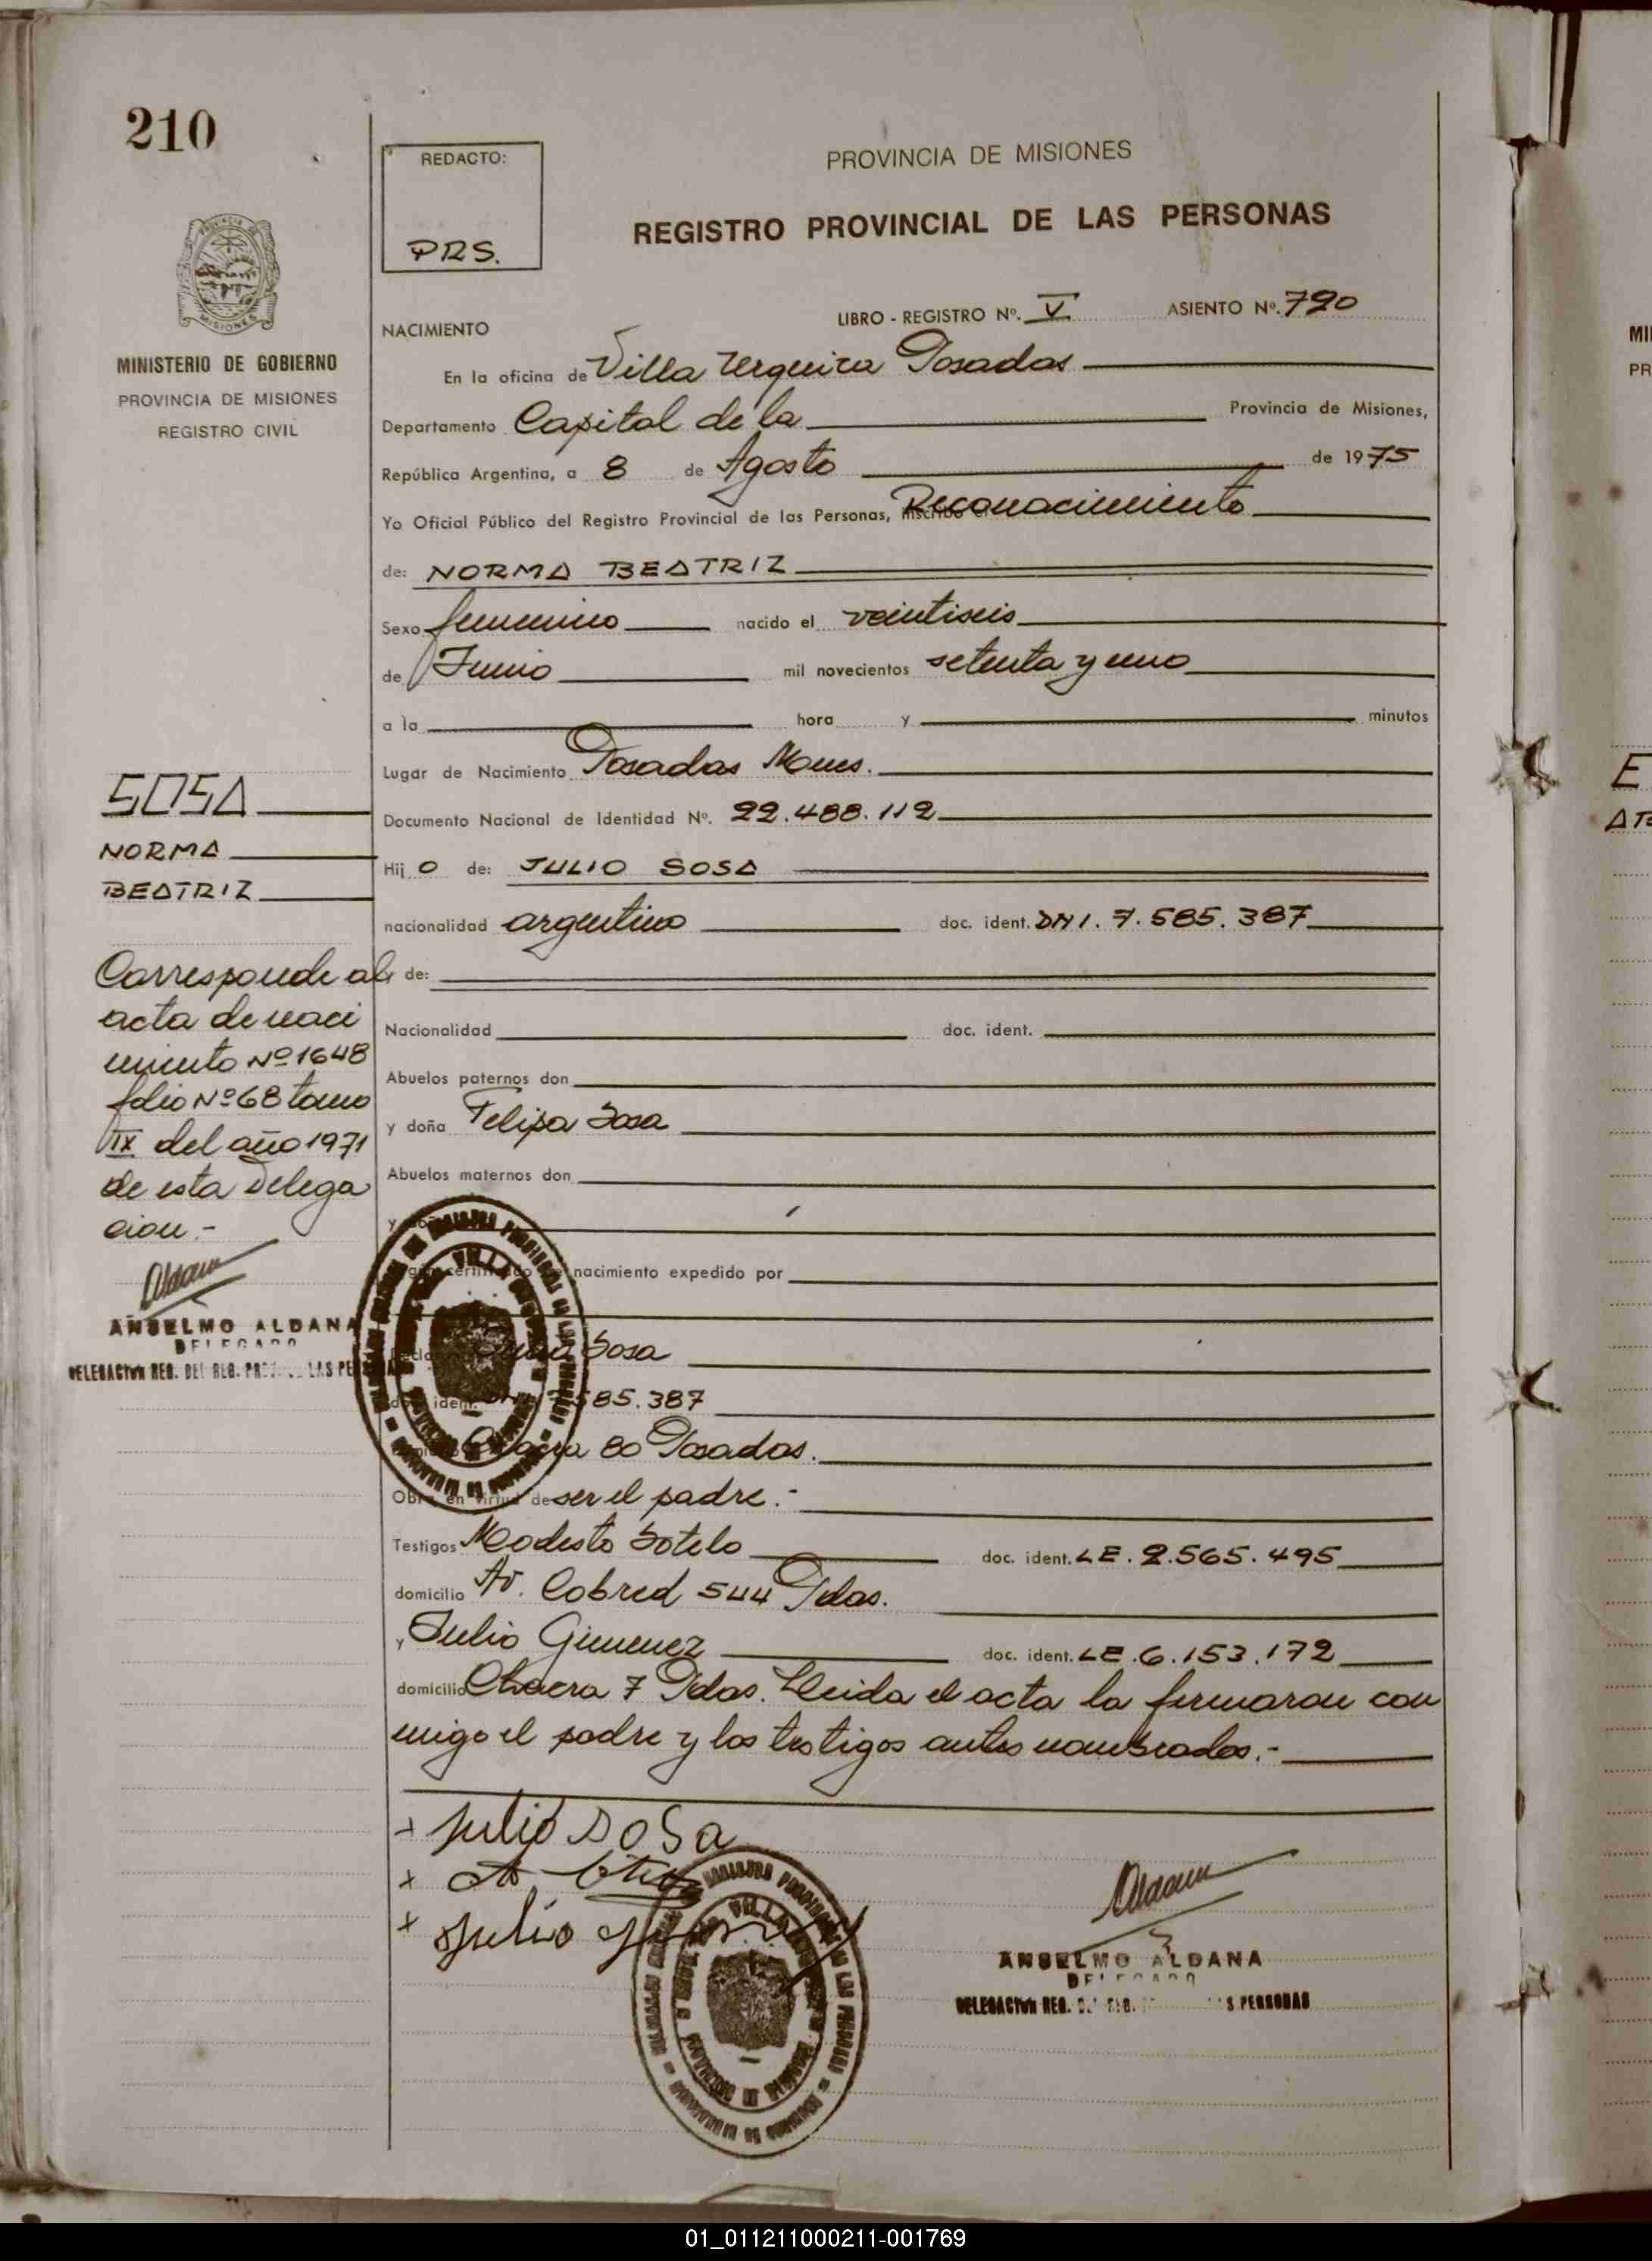 210
REDACTO:
PRS.
PROVINCIA DE MISIONES
REGISTRO PROVINCIAL DE LAS PERSONAS
MINISTERIO DE GOBIERNO
PROVINCIA DE MISIONES
REGISTRO CIVIL
LIBRO - REGISTRO Nº. V ASIENTO Nº. 790
NACIMIENTO
En la oficina de Villa Urquiza Posadas
Departamento Capital de la Provincia de Misiones,
República Argentina, a 8 de Agosto de 1975
Yo Oficial Público del Registro Provincial de las Personas, inscribo el Reconocimiento
de: NORMA BEATRIZ
Sexo femenino nacido el veintiseis
de Junio mil novecientos setenta y uno
a la hora y minutos
Lugar de Nacimiento Posadas Mnes.
Documento Nacional de Identidad Nº. 22.488.112
Hij o de: JULIO SOSA
nacionalidad argentino doc. ident. DNI. 7.585.387
y de:
Nacionalidad doc. ident.
Abuelos paternos don
y doña Felipa Sosa
Abuelos maternos don
y doña
nacimiento expedido por
Sosa
doc. ident. 585.387
Chacra 80 Posadas.
Obra en virtud de ser el padre.-
Testigos Modesto Sotelo doc. ident. LE. 2.565.495
domicilio Av. Cobred 544 Pdas.
y Julio Gimenez doc. ident. LE. 6.153.172
domicilio Chacra 7 Pdas. Leida el acta la firmaron con
migo el padre y los testigos antes nombrados.-
SOSA
NORMA
BEATRIZ
Corresponde al
acta de naci
miento Nº 1648
folio Nº 68 tomo
IX del año 1971
de esta Delega
cion.-
Aldana
ANSELMO ALDANA
DELEGADO
DELEGACION REG. DEL REG. LAS PERSONAS
julio Sosa
julio
Aldana
ANSELMO ALDANA
DELEGADO
DELEGACION REG. DEL REG. LAS PERSONAS
01_011211000211-001769